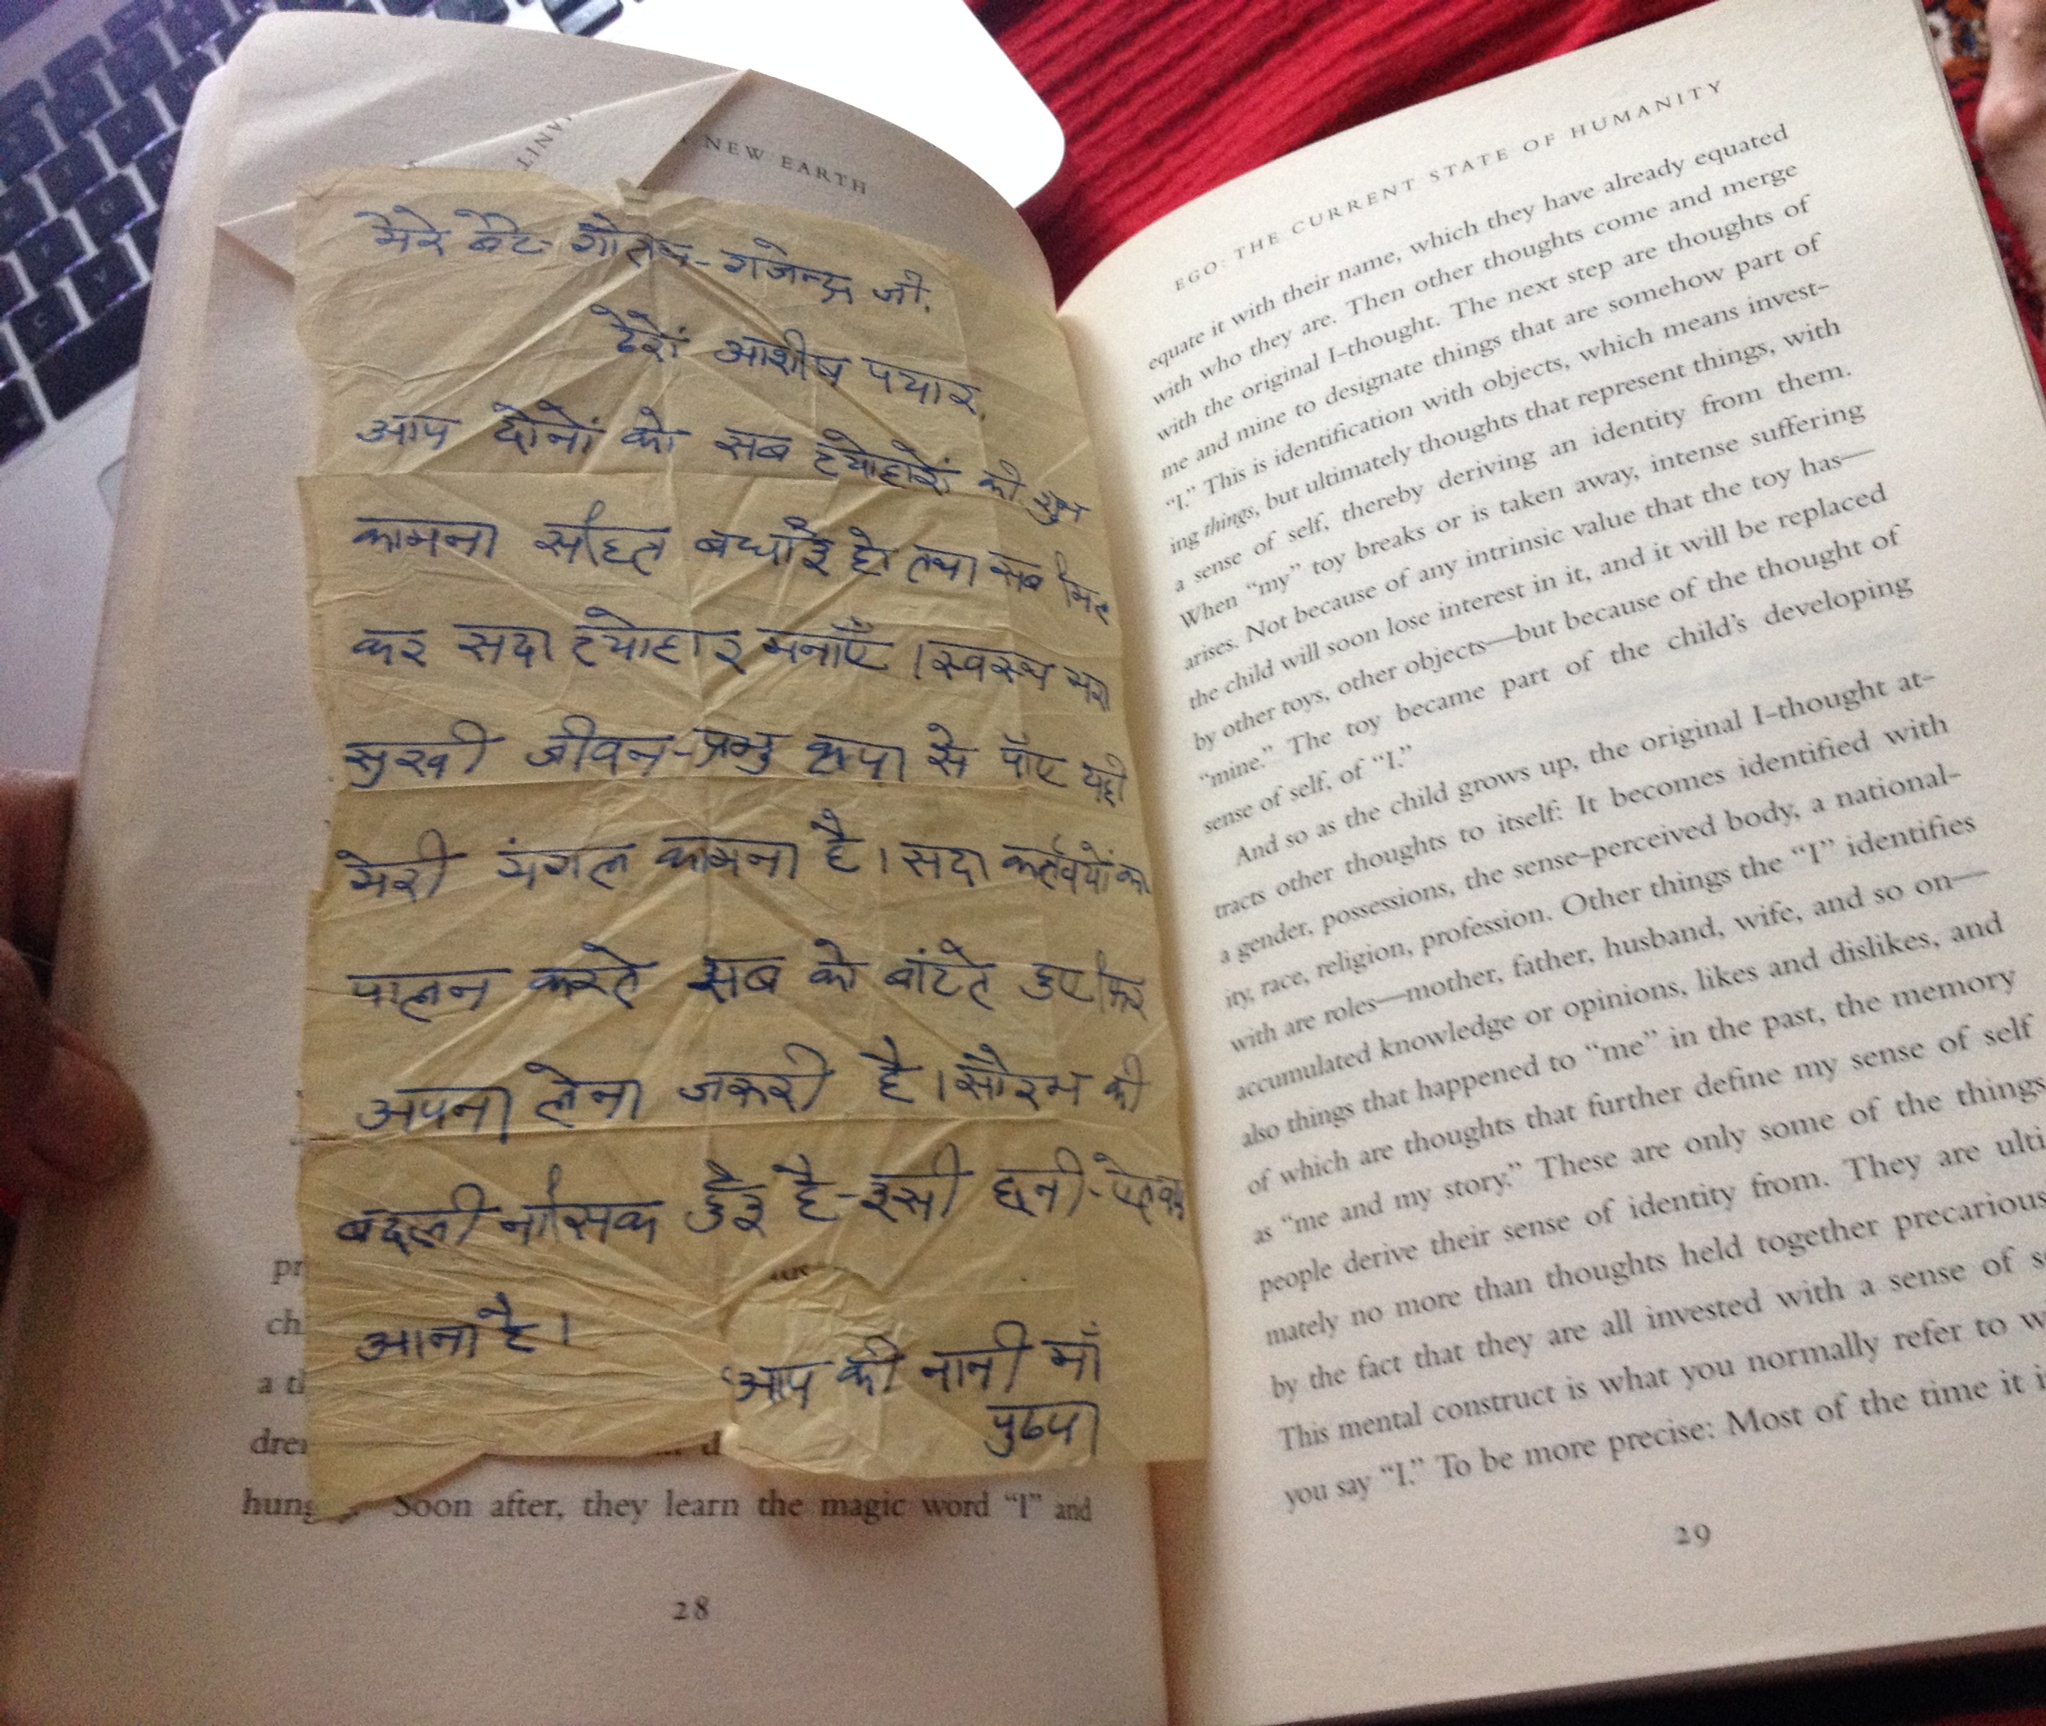 NEW EARTH
मेरे बेटे- गौतम-गजेन्द्र जी.
ढेरों आशीष पयार.
आप दोनों को सब त्योहारों की शुभ
कामना सहित बधाई हो तथा सब मिल
कर सदा त्योहार मनाएँ । स्वस्थ भरा
सुखी जीवन-प्रभु कृपा से पाँए यही
मेरी मंगल कामना है । सदा कर्तवयों का
पालन करते सब को बांटते हुए फिर
अपना लेना जरूरी है । सौरभ की
बदली नासिक हुई है-इसी
आना है ।
आप की नानी माँ
पुष्पा
Soon after, they learn the magic word “I” and
28
EGO: THE CURRENT STATE OF HUMANITY
equate it with their name, which they have already equated
with who they are. Then other thoughts come and merge
with the original I-thought. The next step are thoughts of
me and mine to designate things that are somehow part of
“I.” This is identification with objects, which means invest-
ing things, but ultimately thoughts that represent things, with
a sense of self, thereby deriving an identity from them.
When “my” toy breaks or is taken away, intense suffering
arises. Not because of any intrinsic value that the toy has—
the child will soon lose interest in it, and it will be replaced
by other toys, other objects—but because of the thought of
“mine.” The toy became part of the child’s developing
sense of self, of “I.”
And so as the child grows up, the original I-thought at-
tracts other thoughts to itself: It becomes identified with
a gender, possessions, the sense-perceived body, a national-
ity, race, religion, profession. Other things the “I” identifies
with are roles—mother, father, husband, wife, and so on—
accumulated knowledge or opinions, likes and dislikes, and
also things that happened to “me” in the past, the memory
of which are thoughts that further define my sense of self
as “me and my story.” These are only some of the things
people derive their sense of identity from. They are ulti
mately no more than thoughts held together precarious
by the fact that they are all invested with a sense of s
This mental construct is what you normally refer to w
you say “I.” To be more precise: Most of the time it i
29